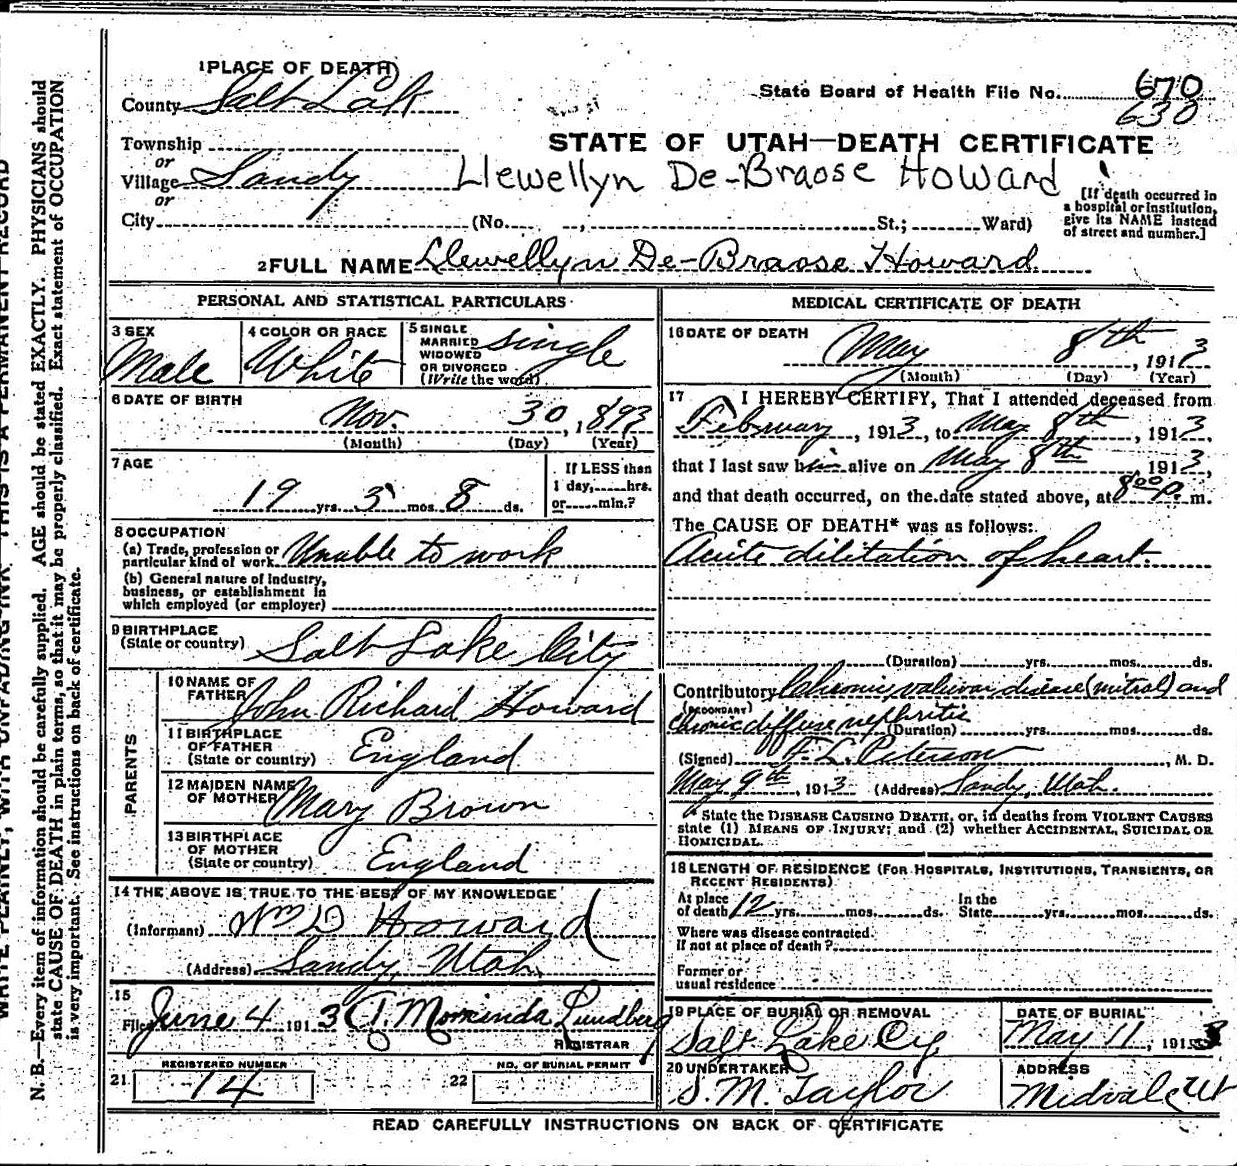 1 PLACE OF DEATH
County Salt Lake
State Board of Health File No. 670
630
Township
STATE OF UTAH—DEATH CERTIFICATE
or
Village Sandy
Llewellyn De-Braose Howard
or
City (No. , St.; Ward)
[If death occurred in a hospital or institution, give its NAME instead of street and number.]
2 FULL NAME Llewellyn De-Braose Howard
PERSONAL AND STATISTICAL PARTICULARS
3 SEX
Male
4 COLOR OR RACE
White
5 SINGLE
MARRIED
WIDOWED
OR DIVORCED
(Write the word)
single
6 DATE OF BIRTH
Nov. 30, 1893
(Month) (Day) (Year)
7 AGE
19 yrs. 5 mos. 8 ds.
If LESS than
1 day, hrs.
or min.?
8 OCCUPATION
(a) Trade, profession or
particular kind of work Unable to work
(b) General nature of Industry,
business, or establishment in
which employed (or employer)
9 BIRTHPLACE
(State or country) Salt Lake City
PARENTS
10 NAME OF
FATHER John Richard Howard
11 BIRTHPLACE
OF FATHER
(State or country) England
12 MAIDEN NAME
OF MOTHER Mary Brown
13 BIRTHPLACE
OF MOTHER
(State or country) England
14 THE ABOVE IS TRUE TO THE BEST OF MY KNOWLEDGE
(Informant) Wm D Howard
(Address) Sandy, Utah.
15
Filed June 4 1913 Lundberg
REGISTRAR
REGISTERED NUMBER
21 14
NO. OF BURIAL PERMIT
22
MEDICAL CERTIFICATE OF DEATH
16 DATE OF DEATH
May 8th, 1913
(Month) (Day) (Year)
17 I HEREBY CERTIFY, That I attended deceased from
February, 1913, to May 8th, 1913,
that I last saw him alive on May 8th 1913,
and that death occurred, on the date stated above, at 8 00 P. m.
The CAUSE OF DEATH* was as follows:
Acute dilitation of heart.
(Duration) yrs. mos. ds.
Contributory Chronic valvular disease (mitral) and
(SECONDARY)
Chronic diffuse nephritis
(Duration) yrs. mos. ds.
(Signed) F. L. Peterson, M. D.
May 9th, 1913 (Address) Sandy, Utah.
* State the DISEASE CAUSING DEATH, or, in deaths from VIOLENT CAUSES
state (1) MEANS OF INJURY; and (2) whether ACCIDENTAL, SUICIDAL OR
HOMICIDAL.
18 LENGTH OF RESIDENCE (FOR HOSPITALS, INSTITUTIONS, TRANSIENTS, OR
RECENT RESIDENTS)
At place
of death 12 yrs. mos. ds.
In the
State yrs. mos. ds.
Where was disease contracted.
If not at place of death?
Former or
usual residence
19 PLACE OF BURIAL OR REMOVAL
Salt Lake Cy.
DATE OF BURIAL
May 11, 1913
20 UNDERTAKER
S. M. Taylor
ADDRESS
Midvale Ut
READ CAREFULLY INSTRUCTIONS ON BACK OF CERTIFICATE
WRITE PLAINLY, WITH UNFADING INK—THIS IS A PERMANENT RECORD
N. B.—Every item of information should be carefully supplied. AGE should be stated EXACTLY. PHYSICIANS should
state CAUSE OF DEATH in plain terms, so that it may be properly classified. Exact statement of OCCUPATION
is very important. See instructions on back of certificate.